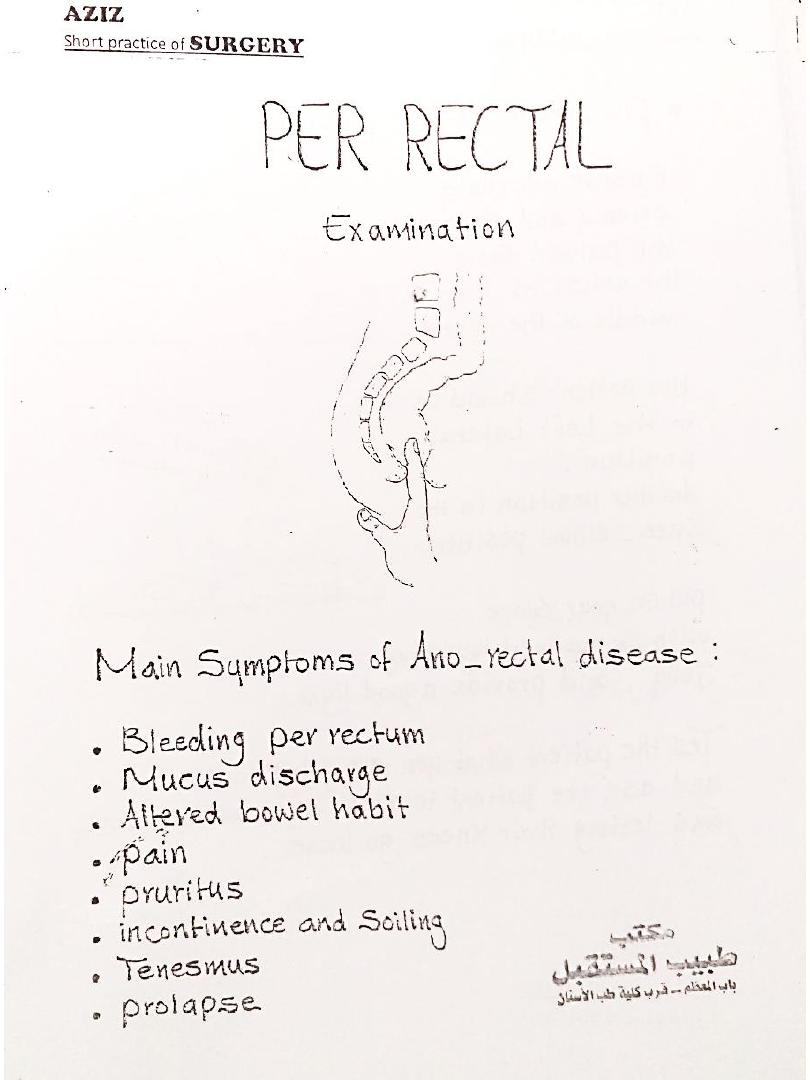 AZIZ
Short practice of SURGERY
PER RECTAL
Examination
Main Symptoms of Ano_rectal disease :
• Bleeding per rectum
• Mucus discharge
• Altered bowel habit
• pain
• pruritus
• incontinence and Soiling
• Tenesmus
• prolapse
مكتب
طبيب المستقبل
باب المعظم - قرب كلية طب الأسنان